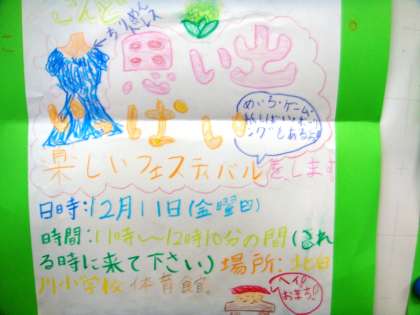 ←ちりめん
ドレス
思い出
いっぱい
めいろ・ゲーム・
ングもあるよ!
楽しいフェスティバルをします
日時:12月11日(金曜日)
時間:11時~12時10分の間(きれ
る時に来て下さい)場所:北白
川小学校 体育館
ヘイ!
おまち!!